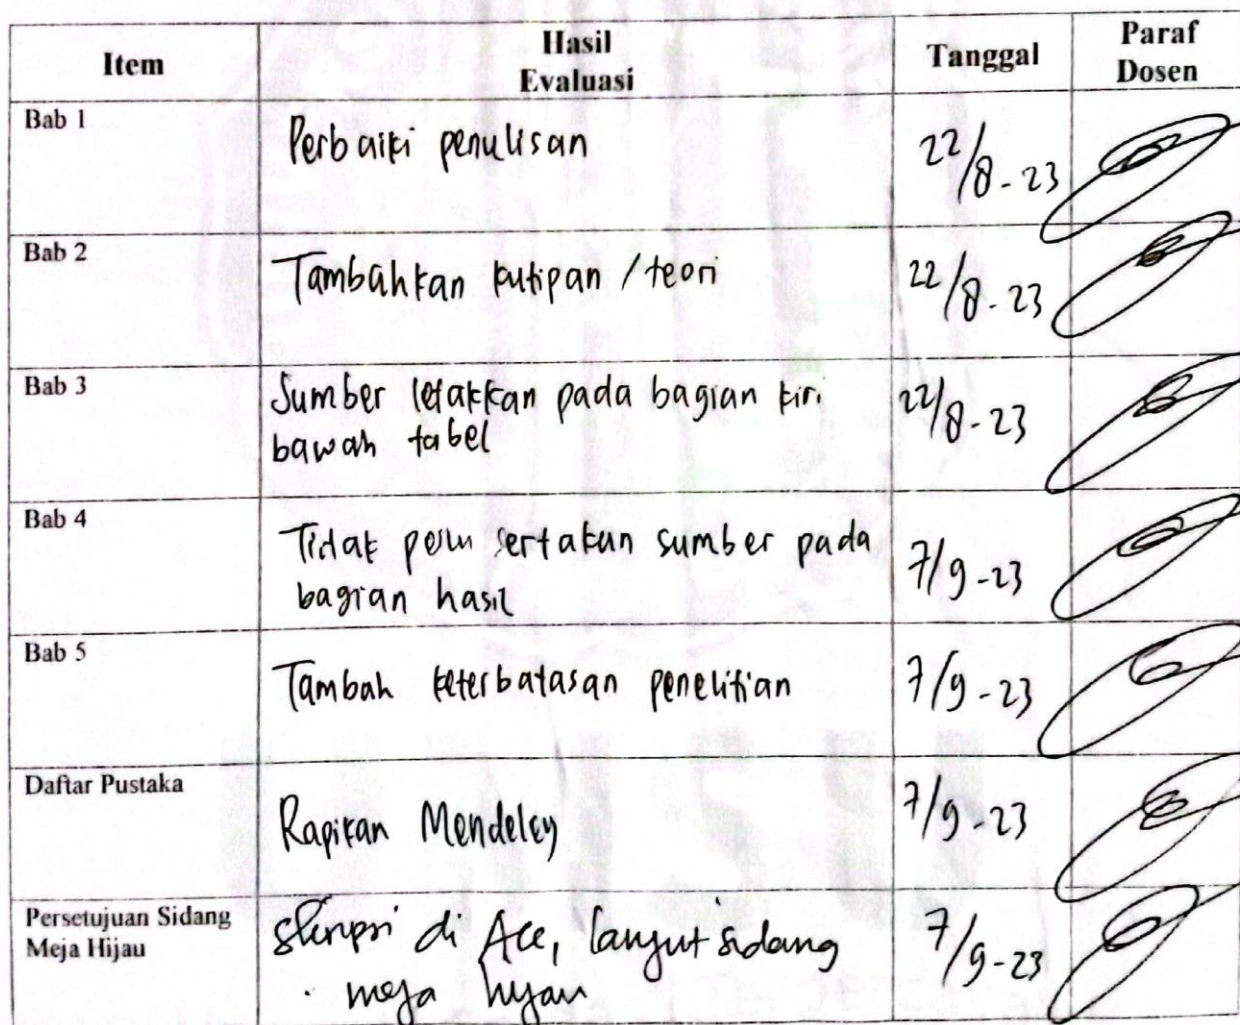 Item
Hasil
Evaluasi
Tanggal
Paraf
Dosen
Bab 1
Perbaiki penulisan
22/8-23
Bab 2
Tambahkan kutipan / teori
22/8-23
Bab 3
Sumber letakkan pada bagian kiri
bawah tabel
22/8-23
Bab 4
Tidak perlu sertakan sumber pada
bagian hasil
7/9-23
Bab 5
Tambah keterbatasan penelitian
7/9-23
Daftar Pustaka
Rapikan Mendeley
7/9-23
Persetujuan Sidang
Meja Hijau
skripsi di Acc, lanjut sidang
meja hijau
7/9-23